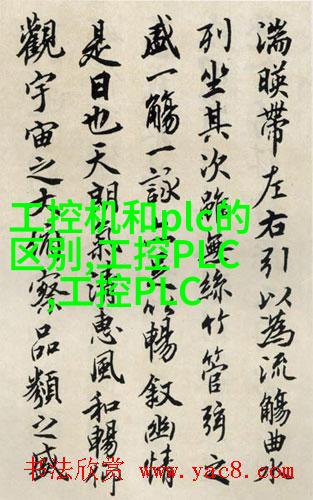 湍暎帶左右引以為流觴曲水
列坐其次雖無絲竹管弦之
盛一觴一詠以暢敘幽情
是日也天朗氣清惠風和暢仰
觀宇宙之大俯察品類之盛
工控机和plc的
区别,工控PLC
,工控PLC
书法欣赏 www.yac8.com